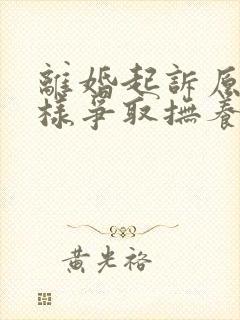 離婚起訴原
樣爭取撫養
黃光裕